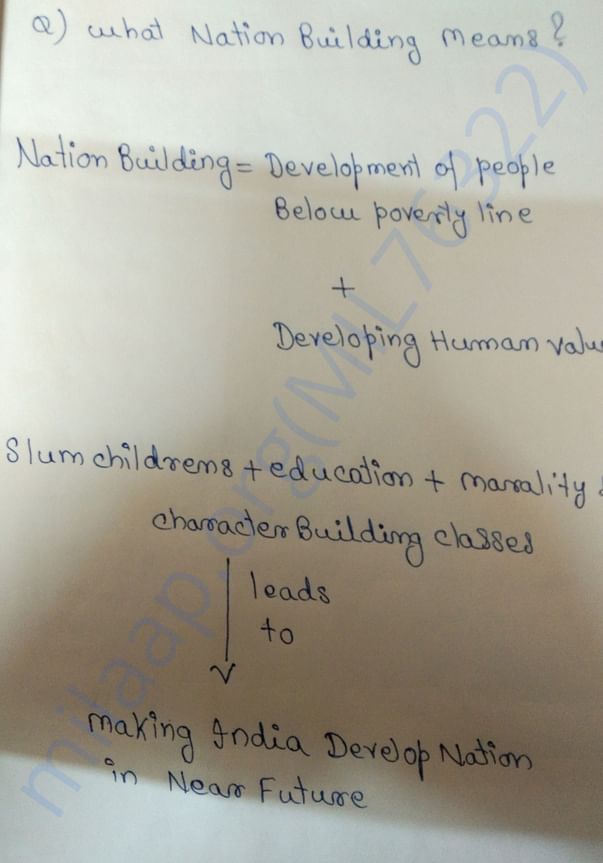 Q) what Nation Building Means?
Nation Building = Development of people
Below poverty line
+
Developing Human valu
Slum childrens + education + marality
character Building classes
leads
to
Making India Develop Nation
in Near Future
milaap.org(MIL76322)